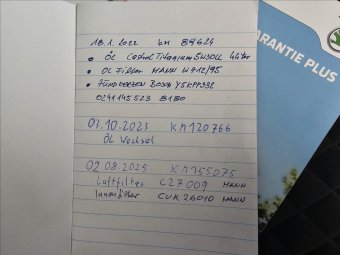 18.1.2022 km 89624
• ÖL Castrol Titanium 5W30LL 4Liter
• OL Filter MANN W712/95
• Zündkerzen Bosch Y5KPP332
0241145523 8180
02.10.2023 KM120766
ÖL Wechsel
02.08.2025 KM155075
Luftfilter C27009 MANN
Innenfilter CUK26010 MANN
ARANTIE PLUS